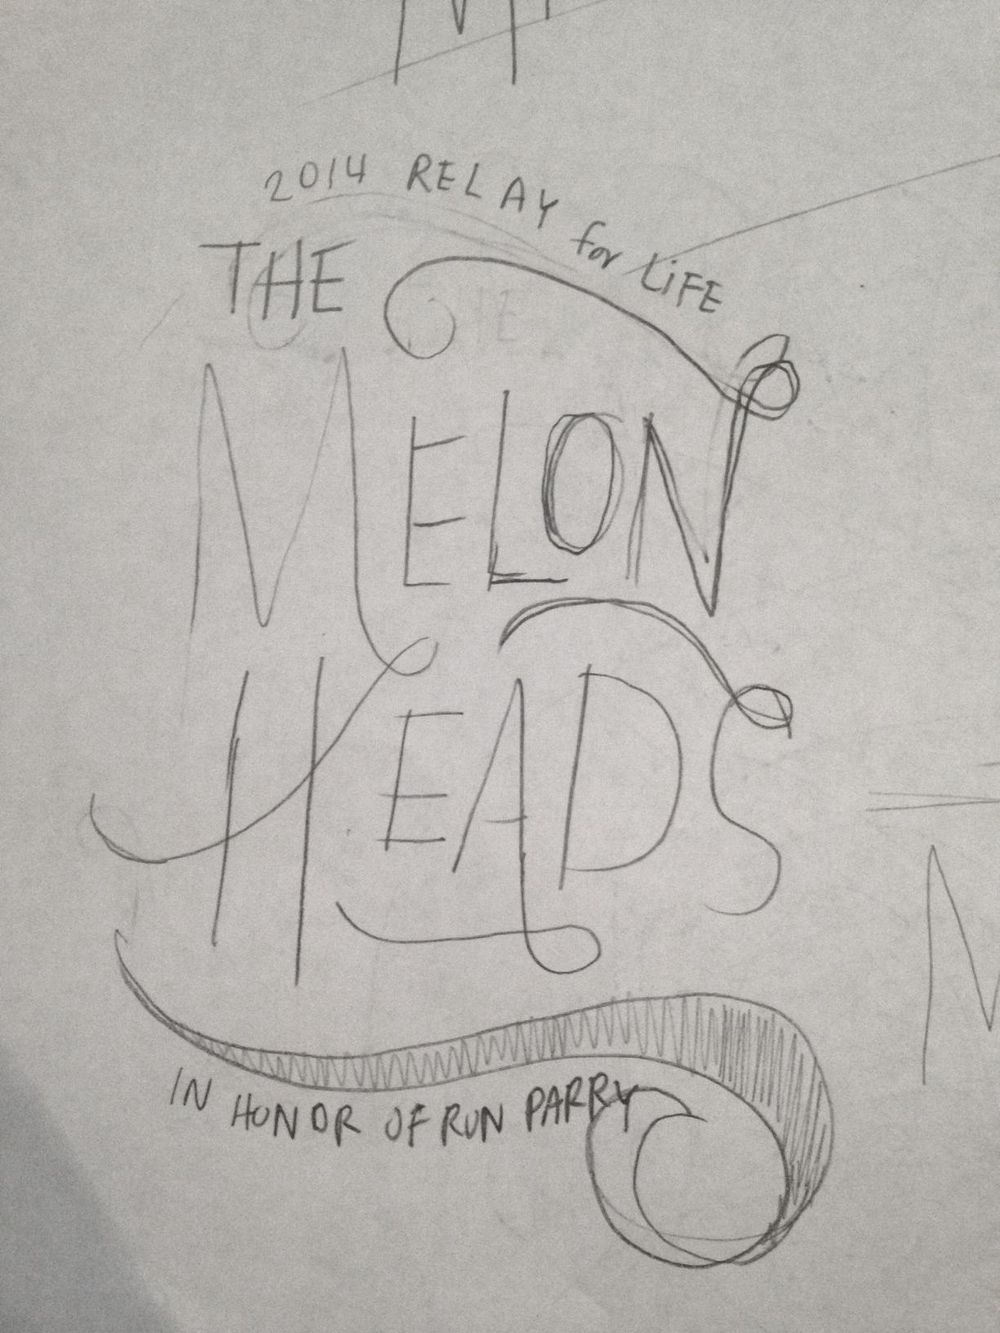 2014 RELAY for LiFE
THE
MELON
HEADS
IN HONOR OF RON PARRY